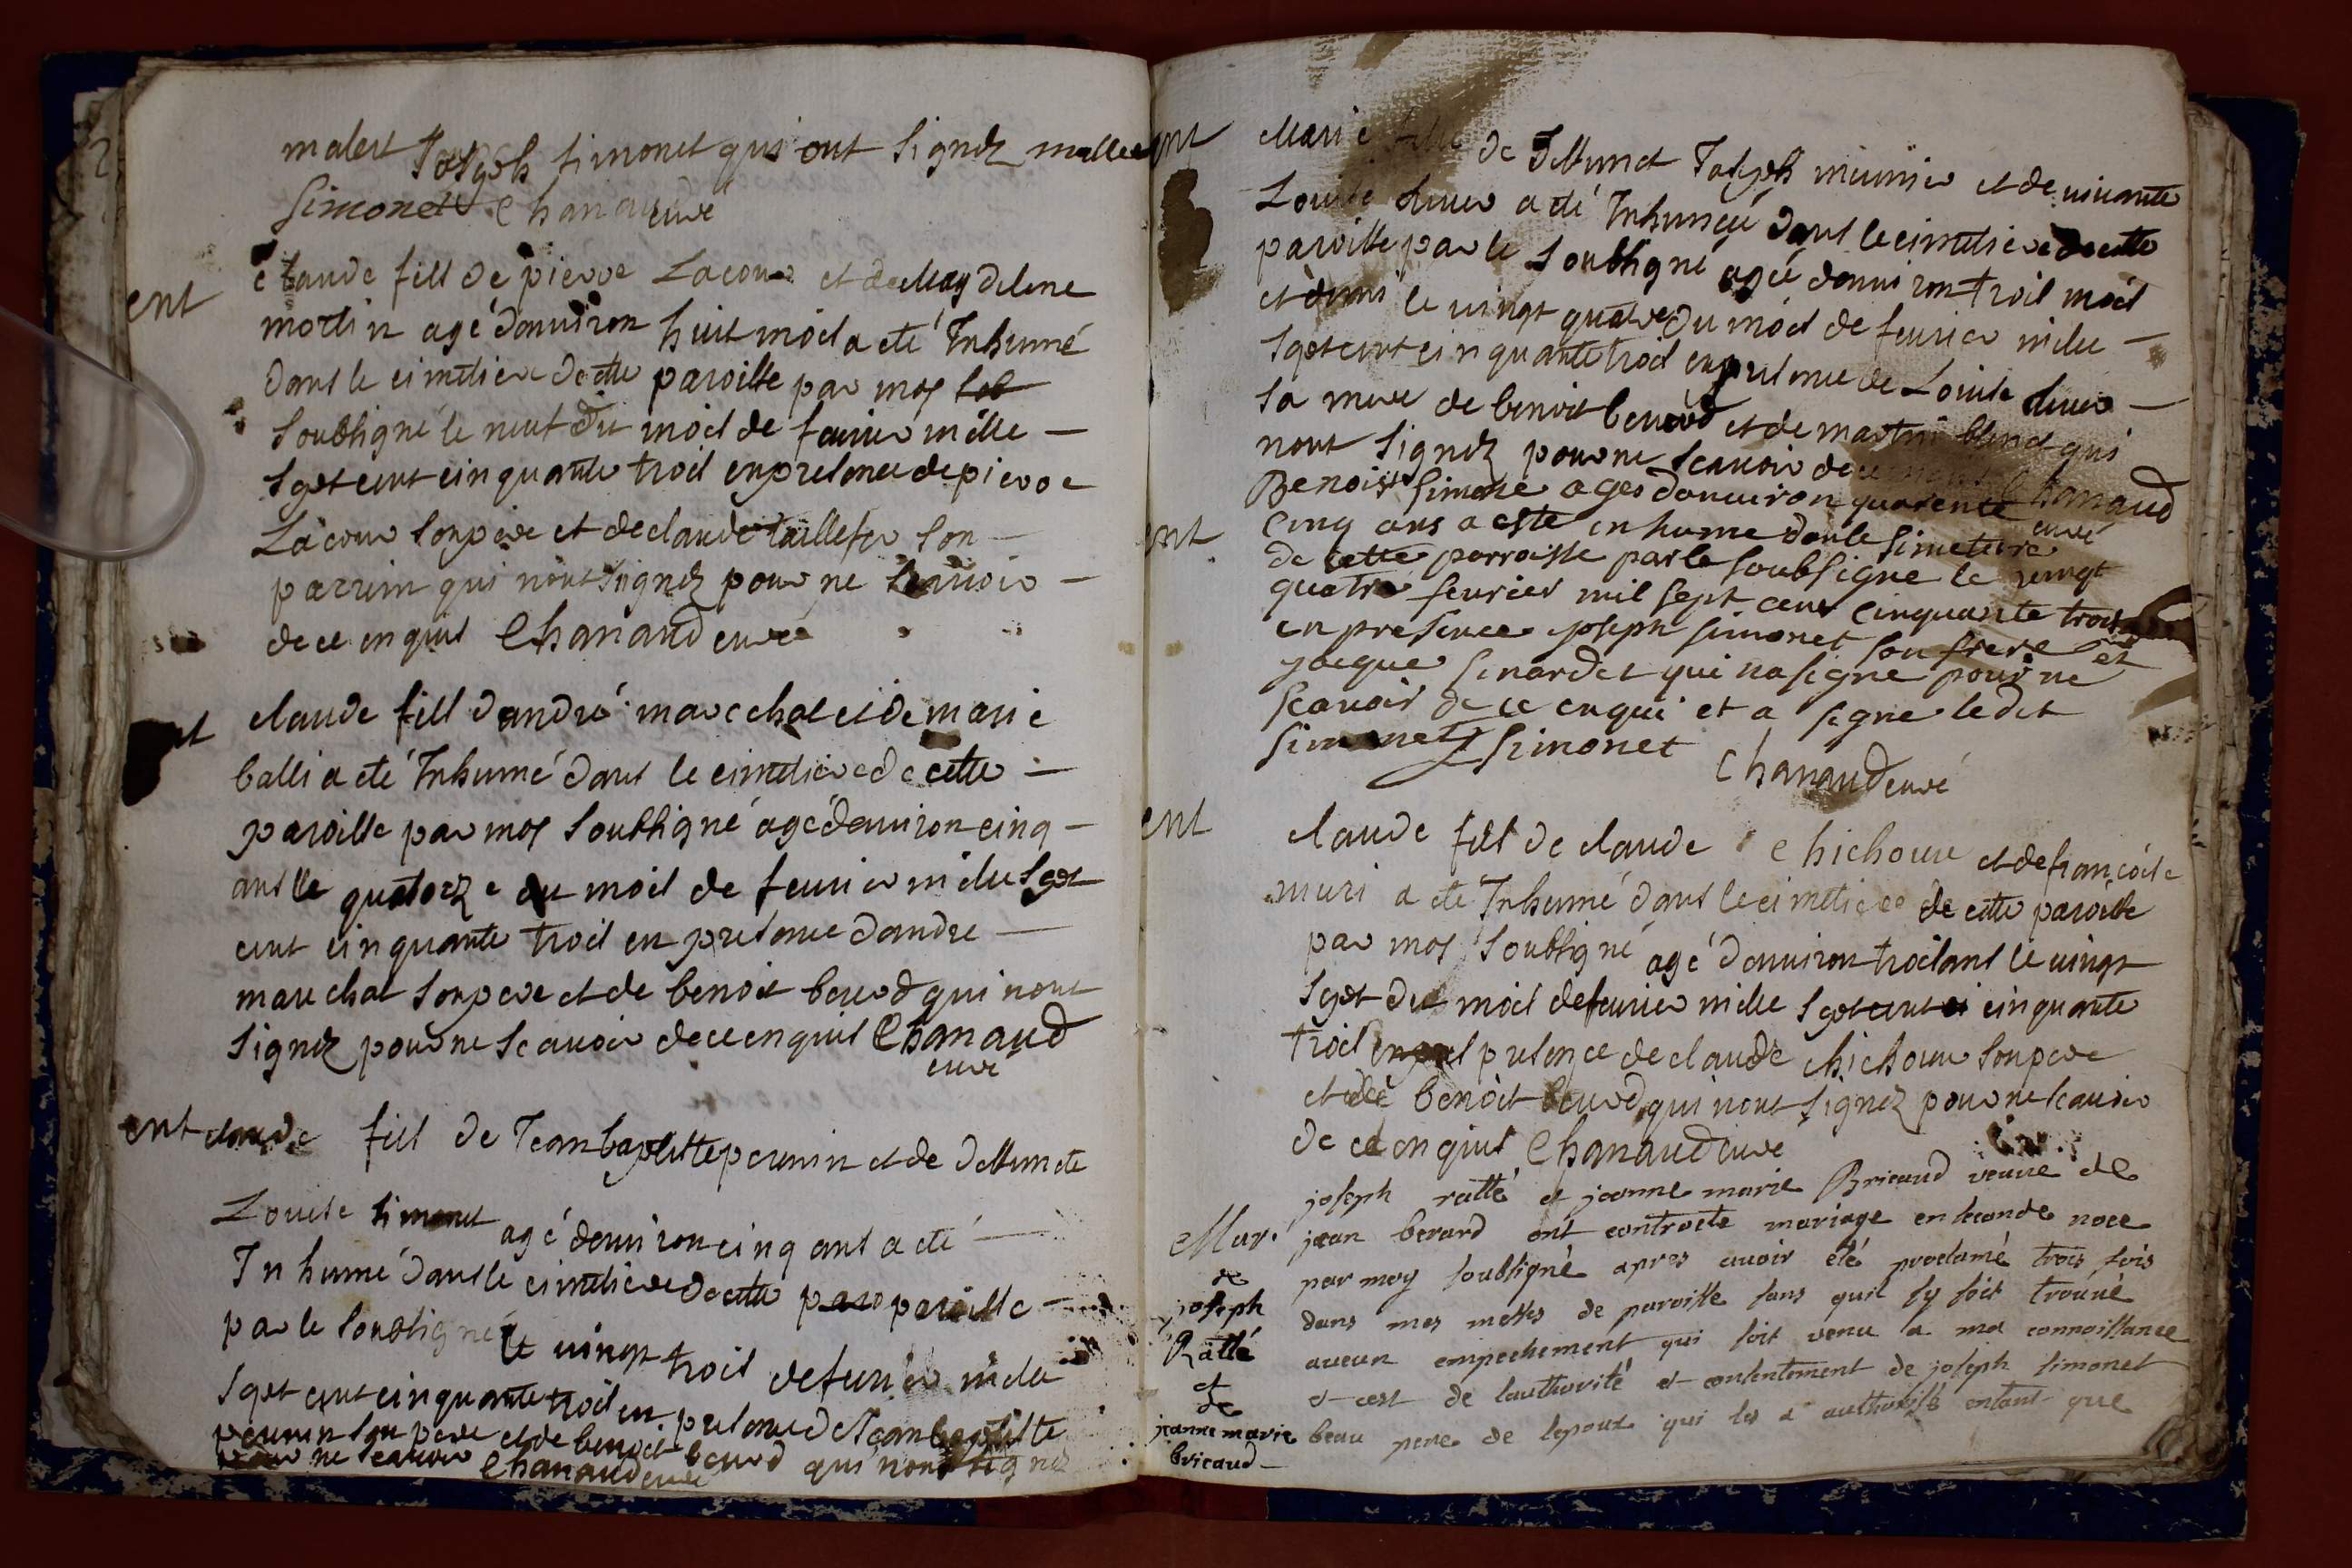 malert Joseph simonet qui ont signéz malle
Simonet Chanaud curé
ent
claude fils de pierre Lacour et de Magdelene
morlin agé d'anviron huit mois a eté Inhumé
dans le cimetiere de cette paroisse par moy
soussigné le neuf du mois de fevrier mille
sept cent cinquante trois en presence de pierre
Lacour son pere et de claude taillefer son
parrin qui n'ont signéz pour ne scavoir
de ce enquis Chanaud curé
claude fils d'andré marechal et de marie
balli a eté Inhumé dans le cimetiere de cette
paroisse par moy soussigné agé d'anviron cinq
ans le quatorze du mois de fevrier mille sept
cent cinquante trois en presence d'andre
marechal son pere et de benoit berard qui n'ont
signéz pour ne scavoir de ce enquis Chanaud
curé
ent claude fils de Jean baptiste perunin et de deffuncte
Louise simonet agé d'anviron cinq ans a eté
Inhumé dans le cimetiere de cette paro paroisse
par le soussigné le vingt trois de fevrier mille
sept cent cinquante trois en presence de Jean baptiste
perunin son pere et de benoit berard qui n'ont signéz
pour ne scavoir Chanaud curé
ent Marie fille de deffunct Joseph meunier et de vivante
Louise a eté Inhumée dans le cimetiere de cette
paroisse par le soussigné agée d'anviron trois mois
et demi le vingt quatre du mois de fevrier mille
sept cent cinquante trois en presence de Louise
sa mere de benoit berard et de martin blanct qui
n'ont signéz pour ne scavoir de ce Chanaud
curé
ent
Benoist Simone ages danuiron quarente
Cinq ans a este in hume dans le simeteire
de cette parroisse par le soubsigne le vingt
quatre fevrier mil sept cent cinquante trois
en presence joseph simonet son frere et
jacque sinardet qui na signe pour ne
scavoir de ce enqui et a signe ledit
simonet J Simonet
Chanaud curé
ent
claude fils de claude chichoux et de francoise
muri a eté Inhumé dans le cimetiere de cette paroisse
par moy soussigné agé d'anviron trois ans le vingt
sept du mois de fevrier mille sept cent ci cinquante
trois en pres presence de claude chichoux son pere
et de benoit berard qui n'ont signéz pour ne scavoir
de ce enquis Chanaud curé
Mar.
de
joseph
Rattè
et
de
jeanne marie
bricaud
joseph rattè et jeanne marie Bricaud veuve de
jean berard ont contracte mariage en seconde noce
par moy soussignè apres avoir été proclamè trois fois
dans mes messes de paroisse sans quil sy soit trouvè
aucun empechement qui soit venu a ma connoissance
et cest de lauthorité et consentement de joseph simonet
beau pere de lepoux qui les a authorisés entant que